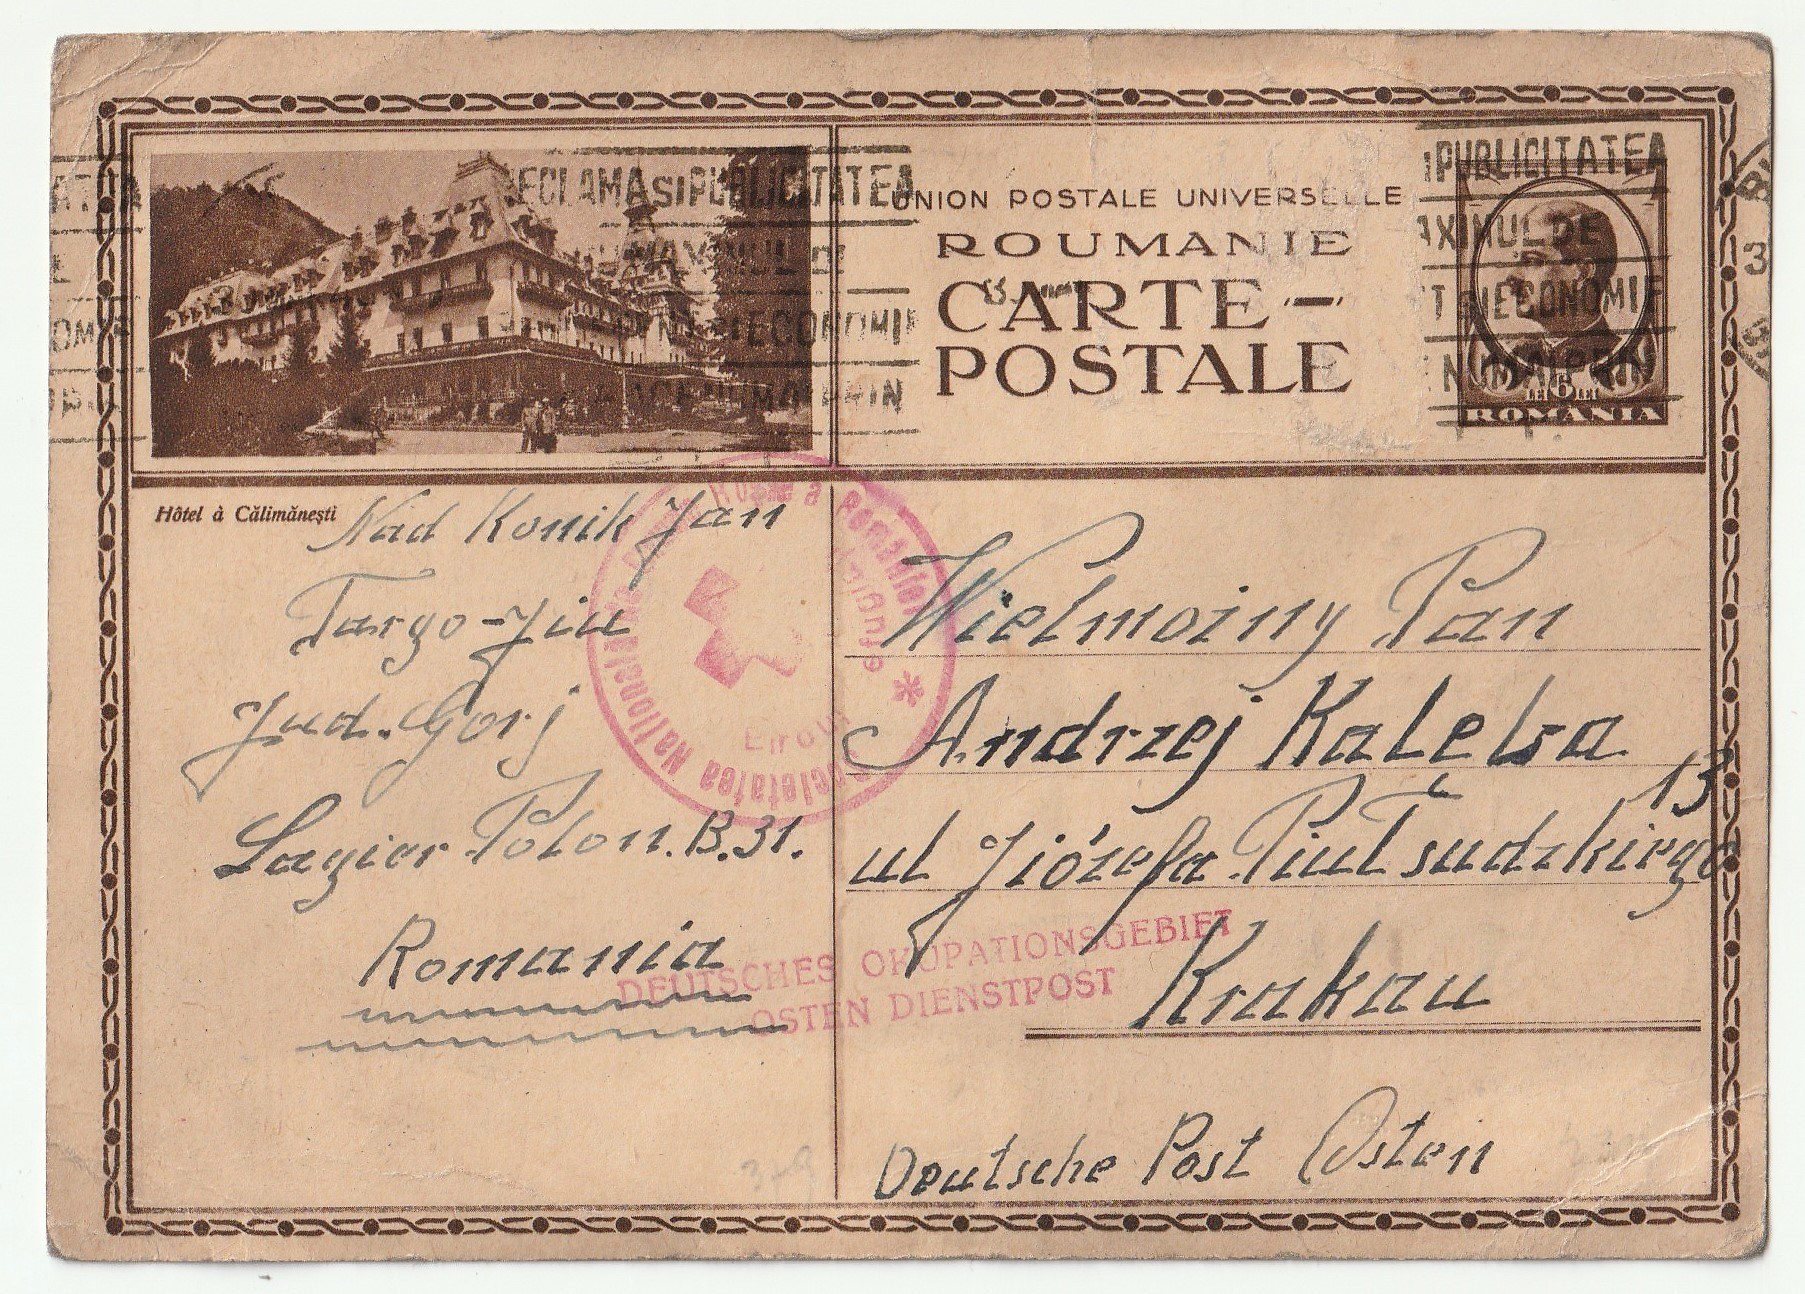 RECLAMA SI PUBLICITATEA
UNION POSTALE UNIVERSELLE
ROUMANIE
CARTE-
POSTALE
PUBLICITATEA
MAXIMUL DE
SI ECONOMIE
NUMAI PRIN
6 LEI
ROMANIA
Hôtel à Călimănești
Nad Konik Jan
Targo-Jiu
Jud. Gorj
Lagier Polon. B.31.
Romania
Societatea Națională de Cruce Roșie a României
Wielmożny Pan
Andrzej Kałęba
13
ul Józefa Piułsudzkiego
Krakau
DEUTSCHES OKUPATIONSGEBIET
OSTEN DIENSTPOST
Deutsche Post Osten